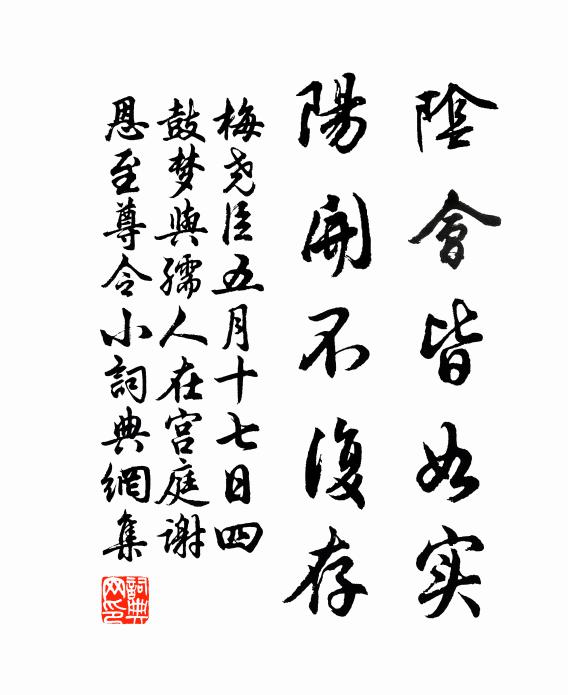 陰會皆如实
陽開不復存
梅尧臣五月十七日四
鼓梦與孺人在宫庭谢
恩至尊令小詞典網集
詞典网印